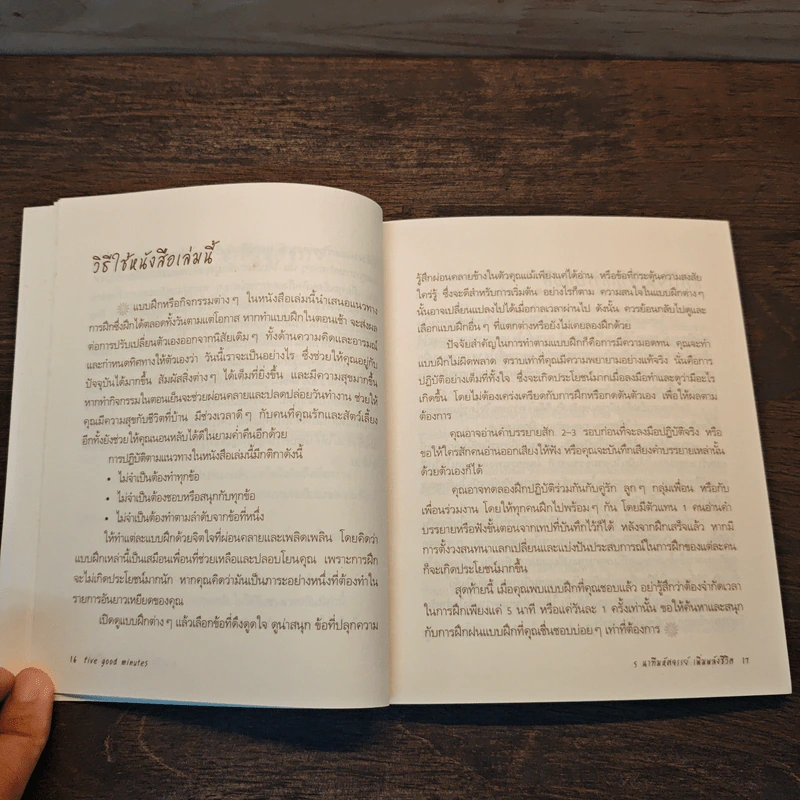 วิธีใช้หนังสือเล่มนี้
แบบฝึกหรือกิจกรรมต่างๆ ในหนังสือเล่มนี้นำเสนอแนวทาง
การฝึกซึ่งฝึกได้ตลอดทั้งวันตามแต่โอกาส หากทำแบบฝึกในตอนเช้า จะส่งผล
ต่อการปรับเปลี่ยนตัวเองออกจากนิสัยเดิมๆ ทั้งด้านความคิดและอารมณ์
และกำหนดทิศทางให้ตัวเองว่า วันนี้เราจะเป็นอย่างไร ซึ่งช่วยให้คุณอยู่กับ
ปัจจุบันได้มากขึ้น สัมผัสสิ่งต่างๆ ได้เต็มที่ยิ่งขึ้น และมีความสุขมากขึ้น
หากทำกิจกรรมในตอนเย็นจะช่วยผ่อนคลายและปลดปล่อยวันทำงาน ช่วยให้
คุณมีความสุขกับชีวิตที่บ้าน มีช่วงเวลาดีๆ กับคนที่คุณรักและสัตว์เลี้ยง
อีกทั้งยังช่วยให้คุณนอนหลับได้ดีในยามค่ำคืนอีกด้วย
การปฏิบัติตามแนวทางในหนังสือเล่มนี้มีกติกาดังนี้
• ไม่จำเป็นต้องทำทุกข้อ
• ไม่จำเป็นต้องชอบหรือสนุกกับทุกข้อ
• ไม่จำเป็นต้องทำตามลำดับจากข้อที่หนึ่ง
ให้ทำแต่ละแบบฝึกด้วยจิตใจที่ผ่อนคลายและเพลิดเพลิน โดยคิดว่า
แบบฝึกเหล่านี้เป็นเสมือนเพื่อนที่ช่วยเหลือและปลอบโยนคุณ เพราะการฝึก
จะไม่เกิดประโยชน์มากนัก หากคุณคิดว่ามันเป็นภาระอย่างหนึ่งที่ต้องทำใน
รายการอันยาวเหยียดของคุณ
เปิดดูแบบฝึกต่างๆ แล้วเลือกข้อที่ดึงดูดใจ ดูน่าสนุก ข้อที่ปลุกความ
16 five good minutes
รู้สึกผ่อนคลายข้างในตัวคุณแม้เพียงแค่ได้อ่าน หรือข้อที่กระตุ้นความสงสัย
ใคร่รู้ ซึ่งจะดีสำหรับการเริ่มต้น อย่างไรก็ตาม ความสนใจในแบบฝึกต่างๆ
นั้นอาจเปลี่ยนแปลงได้เมื่อกาลเวลาผ่านไป ดังนั้น ควรย้อนกลับไปดูและ
เลือกแบบฝึกอื่นๆ ที่แตกต่างหรือยังไม่เคยลองฝึกด้วย
ปัจจัยสำคัญในการทำตามแบบฝึกก็คือการมีความอดทน คุณจะทำ
แบบฝึกไม่ผิดพลาด ตราบเท่าที่คุณมีความพยายามอย่างแท้จริง นั่นคือการ
ปฏิบัติอย่างเต็มที่ทั้งใจ ซึ่งจะเกิดประโยชน์มากเมื่อลงมือทำและดูว่ามีอะไร
เกิดขึ้น โดยไม่ต้องเคร่งเครียดกับการฝึกหรือกดดันตัวเอง เพื่อให้ผลตาม
ต้องการ
คุณอาจอ่านคำบรรยายสัก 2-3 รอบก่อนที่จะลงมือปฏิบัติจริง หรือ
ขอให้ใครสักคนอ่านออกเสียงให้ฟัง หรือคุณจะบันทึกเสียงคำบรรยายเหล่านั้น
ด้วยตัวเองก็ได้
คุณอาจทดลองฝึกปฏิบัติร่วมกันกับคู่รัก ลูกๆ กลุ่มเพื่อน หรือกับ
เพื่อนร่วมงาน โดยให้ทุกคนฝึกไปพร้อมๆ กัน โดยมีตัวแทน 1 คนอ่านคำ
บรรยายหรือฟังขั้นตอนจากเทปที่บันทึกไว้ก็ได้ หลังจากฝึกเสร็จแล้ว หากมี
การตั้งวงสนทนาแลกเปลี่ยนและแบ่งปันประสบการณ์ในการฝึกของแต่ละคน
ก็จะเกิดประโยชน์มากขึ้น
สุดท้ายนี้ เมื่อคุณพบแบบฝึกที่คุณชอบแล้ว อย่ารู้สึกว่าต้องจำกัดเวลา
ในการฝึกเพียงแค่ 5 นาที หรือแค่วันละ 1 ครั้งเท่านั้น ขอให้ค้นหาและสนุก
กับการฝึกฝนแบบฝึกที่คุณชื่นชอบบ่อยๆ เท่าที่ต้องการ
5 นาทีมหัศจรรย์ เพิ่มพลังชีวิต 17